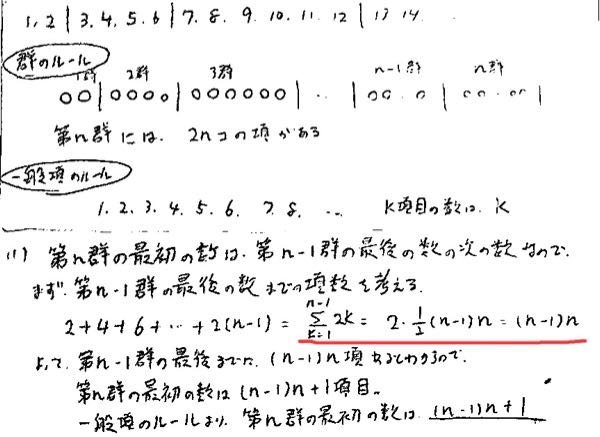 1, 2 | 3, 4, 5, 6 | 7, 8, 9, 10, 11, 12 | 13 14 ...
群のルール
1群 2群 3群 n-1群 n群
○○ | ○○○○ | ○○○○○○ | ... | ○○.○ | ○○.○○ |
第n群には、2nコの項がある
一般項のルール
1, 2, 3, 4, 5, 6, 7, 8, ... K項目の数は、K
(1) 第n群の最初の数は、第n-1群の最後の数の次の数なので、
まず、第n-1群の最後の数までの項数を考える。
2+4+6+…+2(n-1) = \sum_{k=1}^{n-1} 2k = 2・\frac{1}{2}(n-1)n = (n-1)n
よって、第n-1群の最後までに、(n-1)n項あるとわかるので、
第n群の最初の数は(n-1)n+1項目。
一般項のルールより、第n群の最初の数は、(n-1)n+1